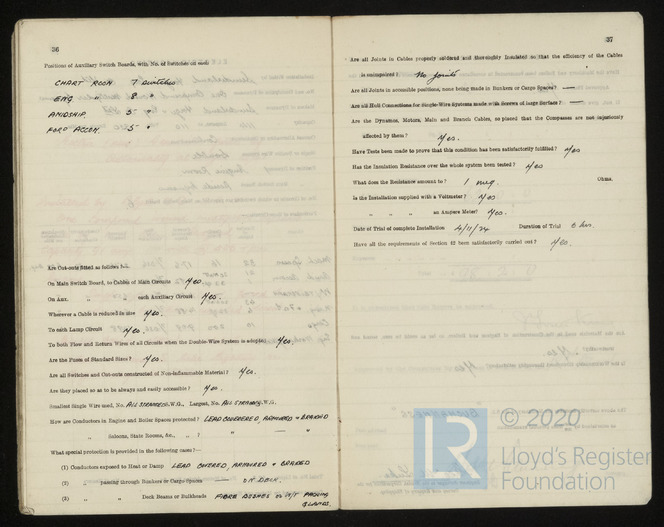 36
Positions of Auxiliary Switch Boards, with No. of Switches on each
CHART ROOM 7 Switches
ENG " 8 "
AMIDSHIP. 5 "
FORD ACCOM. 5 "
Are Cut-outs fitted as follows :—
On Main Switch Board, to Cables of Main Circuits Yes.
On Aux. " " each Auxiliary Circuit Yes.
Wherever a Cable is reduced in size Yes.
To each Lamp Circuit Yes.
To both Flow and Return Wires of all Circuits when the Double-Wire System is adopted Yes.
Are the Fuses of Standard Sizes? Yes.
Are all Switches and Cut-outs constructed of Non-Inflammable Material? Yes.
Are they placed so as to be always and easily accessible? Yes.
Smallest Single Wire used, No. ALL STRANDED S.W.G., Largest, No. ALL STRANDED S.W.G.
How are Conductors in Engine and Boiler Spaces protected? LEAD COVERED, ARMOURED & BRAIDED
" Saloons, State Rooms, &c., " ? " — "
What special protection is provided in the following cases?—
(1) Conductors exposed to Heat or Damp LEAD COVERED, ARMOURED & BRAIDED
(2) " passing through Bunkers or Cargo Spaces — ON DECK.
(3) " " Deck Beams or Bulkheads FIBRE BUSHES OR W/T PACKING GLANDS.
37
Are all Joints in Cables properly soldered and thoroughly insulated so that the efficiency of the Cables
is unimpaired? No joints
Are all Joints in accessible positions, none being made in Bunkers or Cargo Spaces? —
Are all Hull Connections for Single-Wire Systems made with Screws of large Surface? —
Are the Dynamos, Motors, Main and Branch Cables, so placed that the Compasses are not injuriously
affected by them? Yes.
Have Tests been made to prove that this condition has been satisfactorily fulfilled? Yes
Has the Insulation Resistance over the whole system been tested? Yes
What does the Resistance amount to? 1 meg. Ohms.
Is the Installation supplied with a Voltmeter? Yes
" " " an Ampere Meter? Yes.
Date of Trial of complete Installation 4/11/24 Duration of Trial 6 hrs.
Have all the requirements of Section 42 been satisfactorily carried out? Yes.
© 2020
LR
Lloyd's Register
Foundation